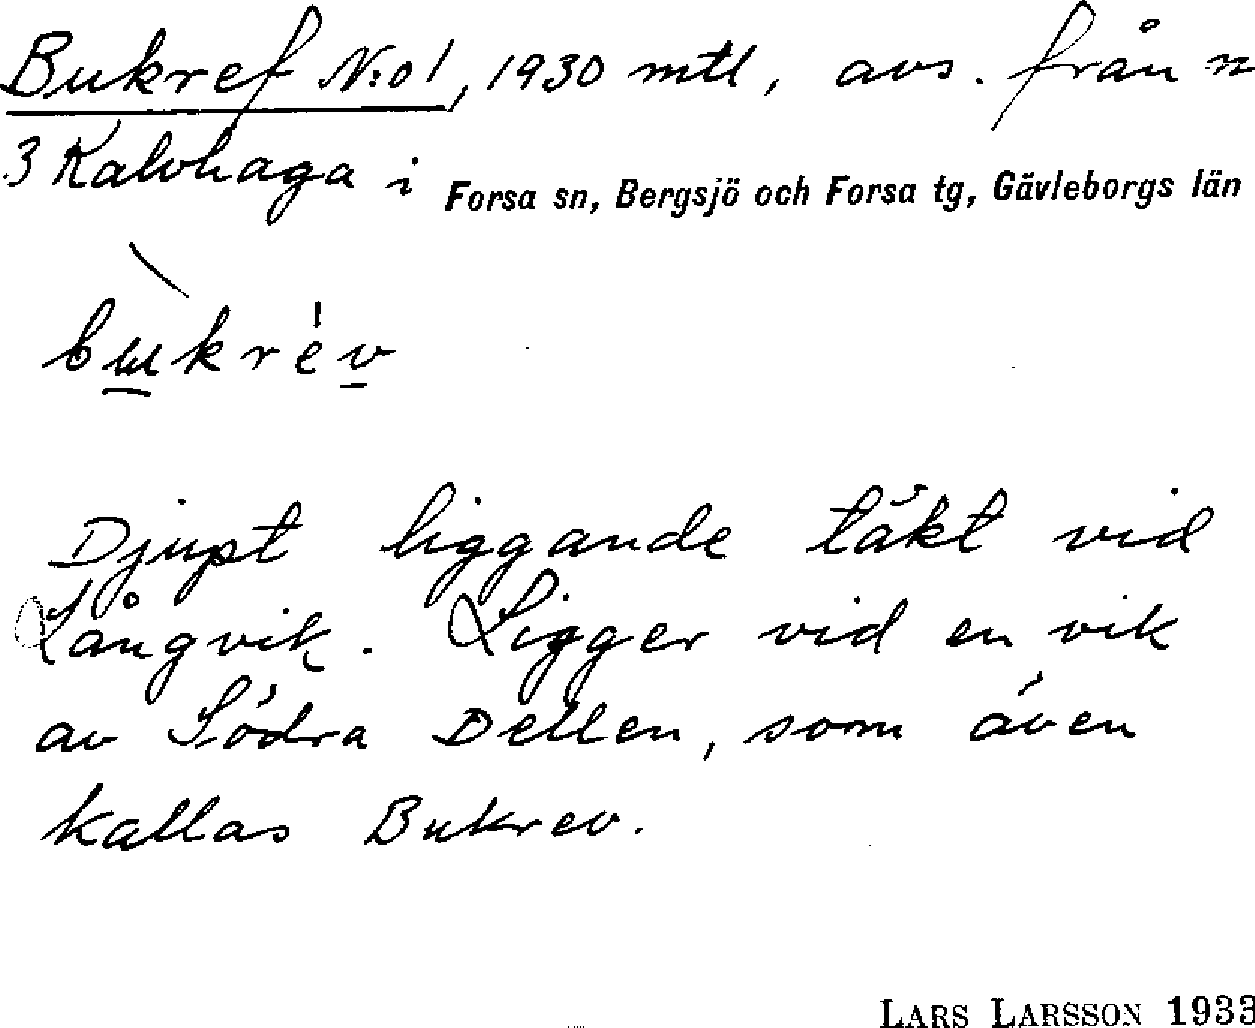 Bukref N:o 1, 1930 mtl, avs. från n
3 Kalvhaga i Forsa sn, Bergsjö och Forsa tg, Gävleborgs län
bukrev
Djupt liggande täkt vid
Långvik. Ligger vid en vik
av Södra Dellen, som även
kallas Bukrev.
LARS LARSSON 1933